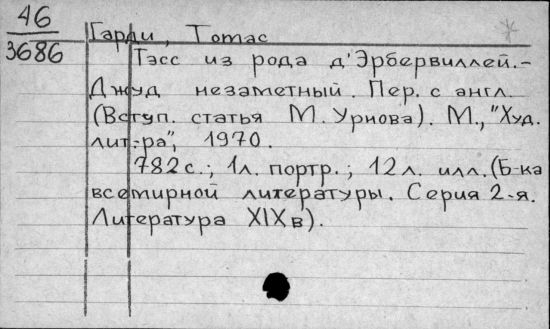 46
3686
Гарди, Томас
Тэсс из рода д'Эрбервиллей.-
Джуд незаметный. Пер. с англ.
(Вступ. статья М. Урнова). М., "Худ.
лит-ра", 1970.
782с.; 1л. портр.; 12л. илл. (Б-ка
всемирной литературы. Серия 2-я.
Литература XIXв).